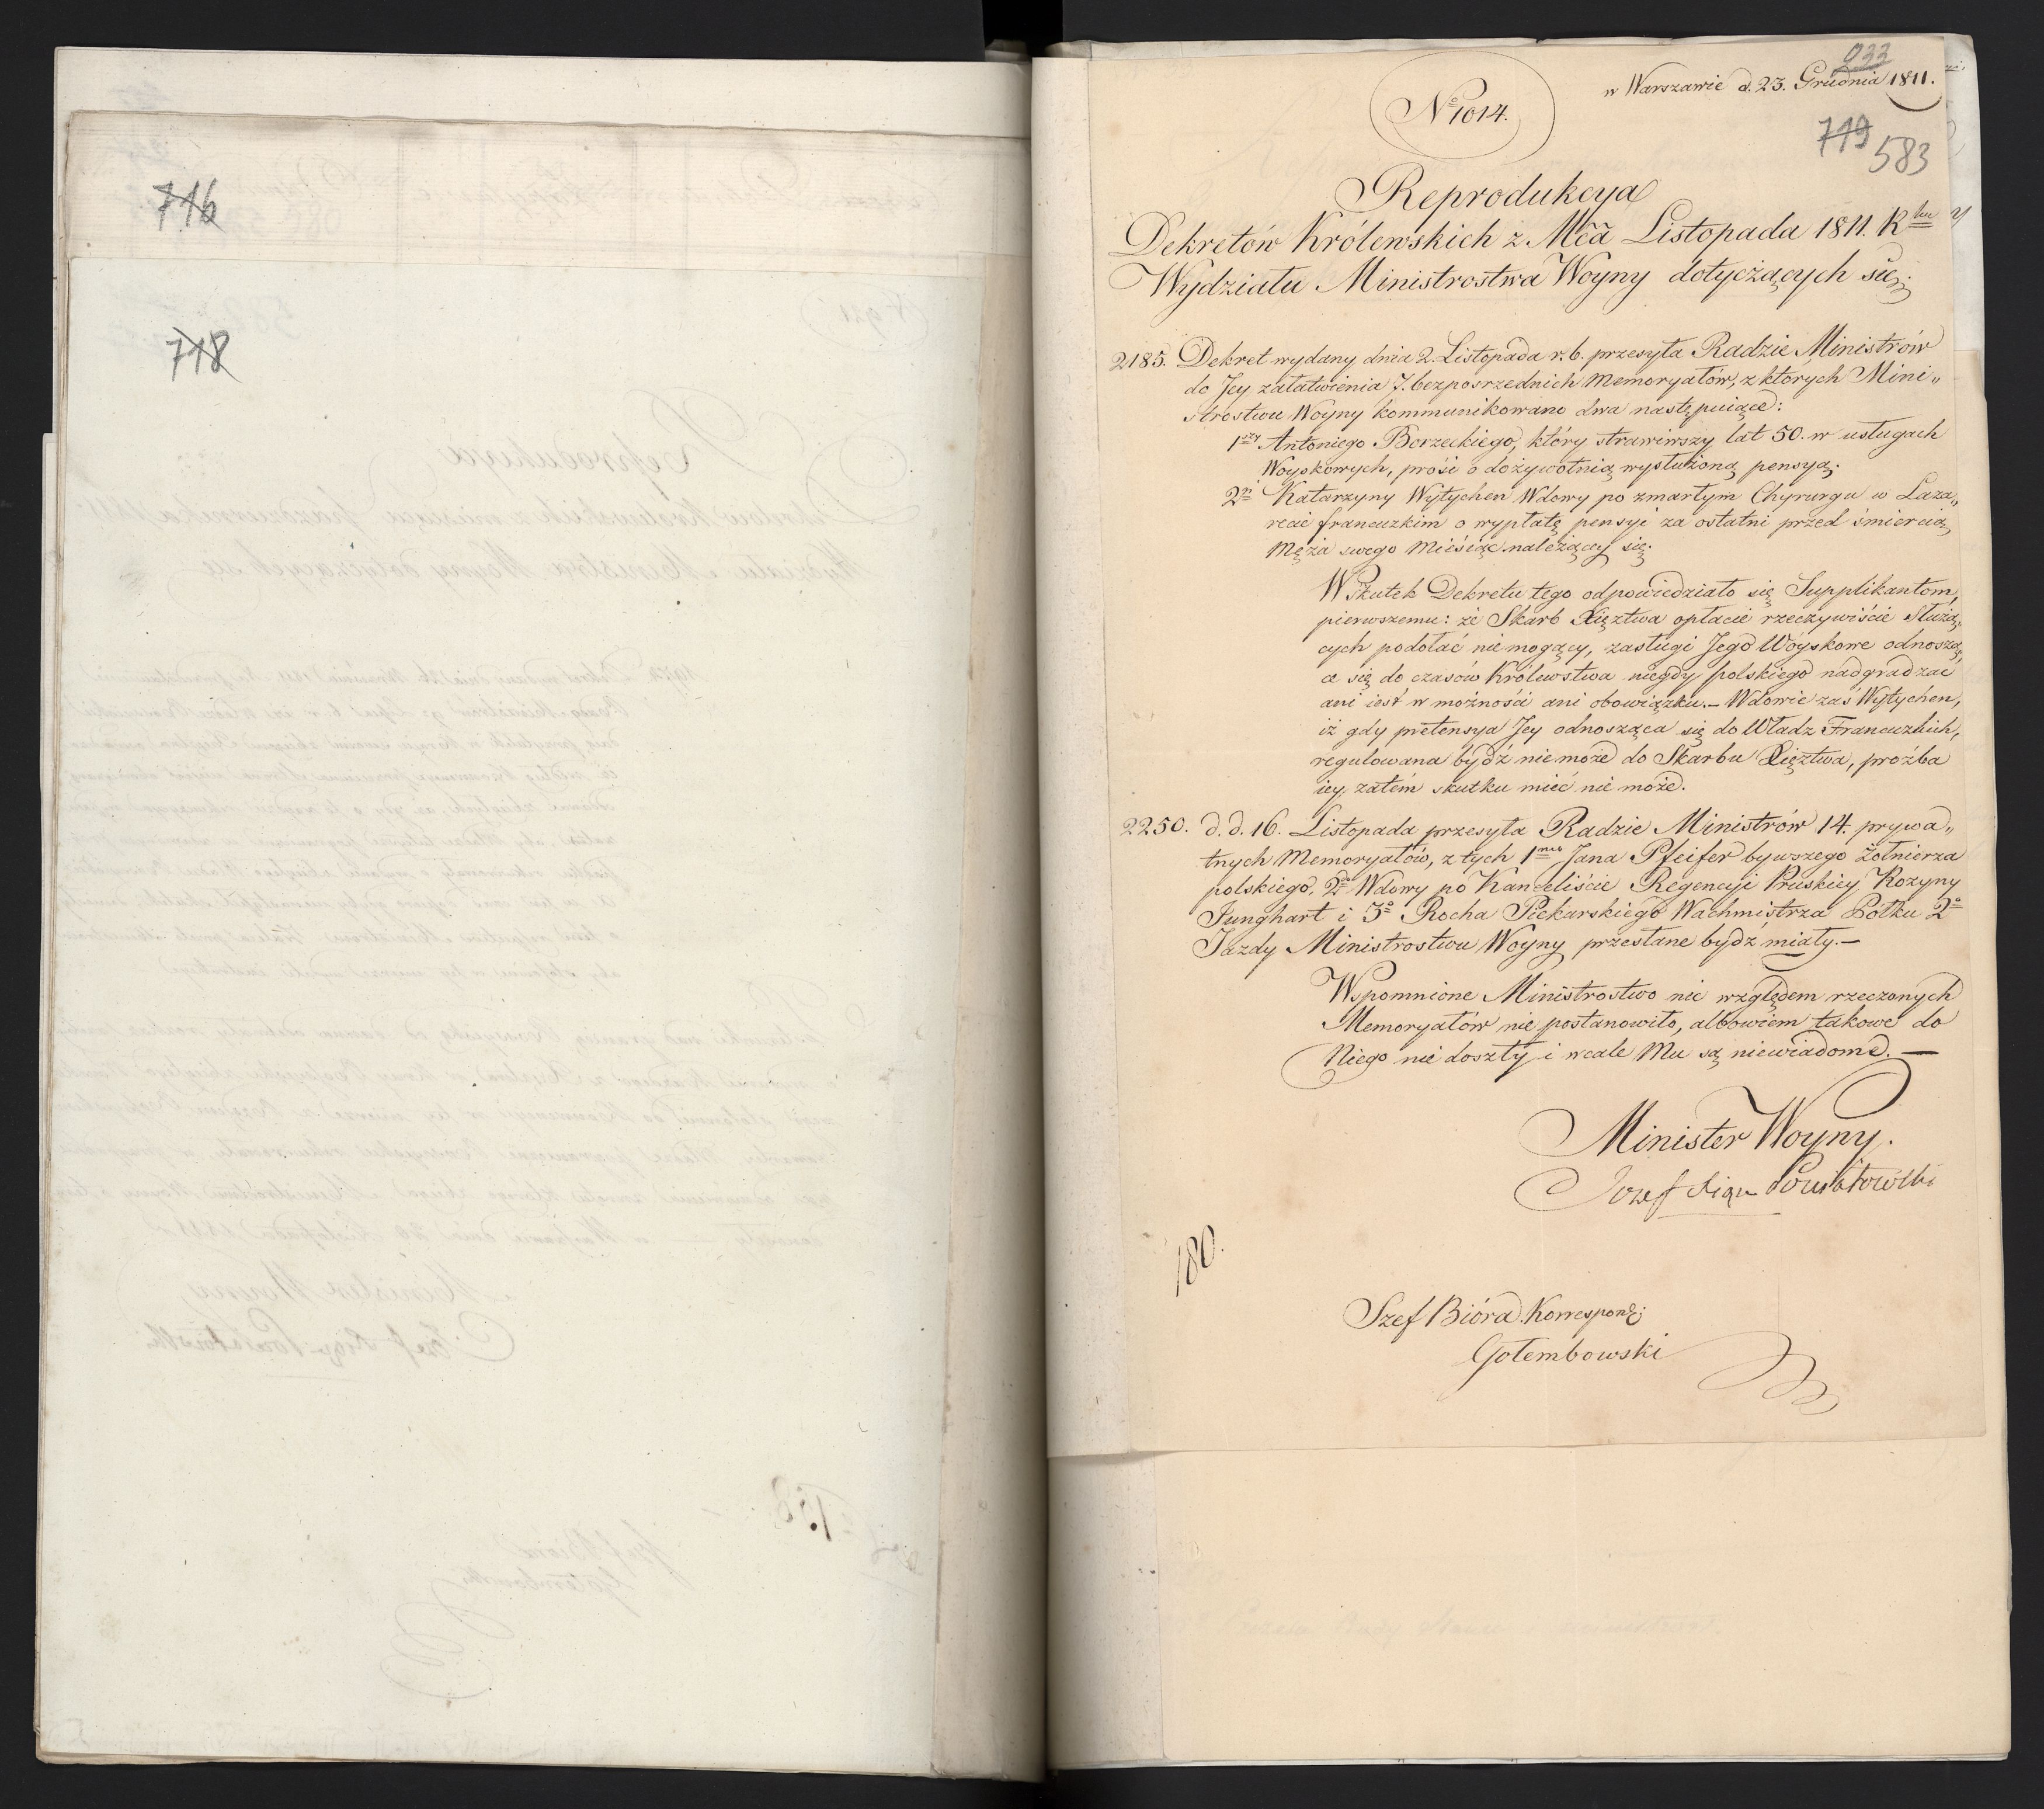 716
718
933
w Warszawie d. 23. Grudnia 1811.
No 1014.
719
583
Reprodukcya
Dekretów Królewskich z Mca Listopada 1811. Rku
Wydziału Ministrostwa Woyny dotyczących się.
2185. Dekret wydany dnia 2. Listopada r. b. przesyła Radzie Ministrów
do Jey załatwienia 7. bezpośrzednich Memoryałów, z ktorych Mini„
strostwu Woyny kommunikowano dwa następuiące:
1szy Antoniego Borzeckiego, który strawiwszy lat 50. w usługach
Woyskowych, prosi o dożywotnią wysłużoną pensyą.
2gi Katarzyny Wytychen Wdowy po zmarłym Chyrurgu w Laza„
recie francuzkim o wypłatę pensyi za ostatni przed śmiercią
Męża swego Miesiąc należącey się.
W Skutek Dekretu tego odpowiedziało się Supplikantom,
pierwszemu: że Skarb Xięztwa opłacie rzeczywiście Służą„
cych podołać nie mogący, zasługi Jego Woyskowe odnoszą„
ce się do czasów Królewstwa niegdy polskiego nadgradzać
ani iest w możności ani obowiązku. – Wdowie zaś Wytychen,
iż gdy pretensya Jey odnosząca się do Władz Francuzkich,
regulowana bydź nie może do Skarbu Xięztwa, proźba
iey zatém skutku mieć nie może.
2250. d. d. 16. Listopada przesyła Radzie Ministrów 14. prywa„
tnych Memoryałów, z tych 1mo Jana Pfeifer bywszego Żołnierza
polskiego, 2do Wdowy po Kanceliście Regencyi Pruskiey Rozyny
Junghart i 3o Rocha Piekarskiego Wachmistrza Półku 2o
Jazdy Ministrostwu Woyny przesłane bydź miały. –
Wspomnione Ministrostwo nic względem rzeczonych
Memoryałów nie postanowiło, albowiem takowe do
Niego nie doszły i wcale Mu są niewiadome. –
Minister Woyny.
Jozef Xiąże Poniatowski
180.
Szef Bióra Korrespond:
Gołembowski